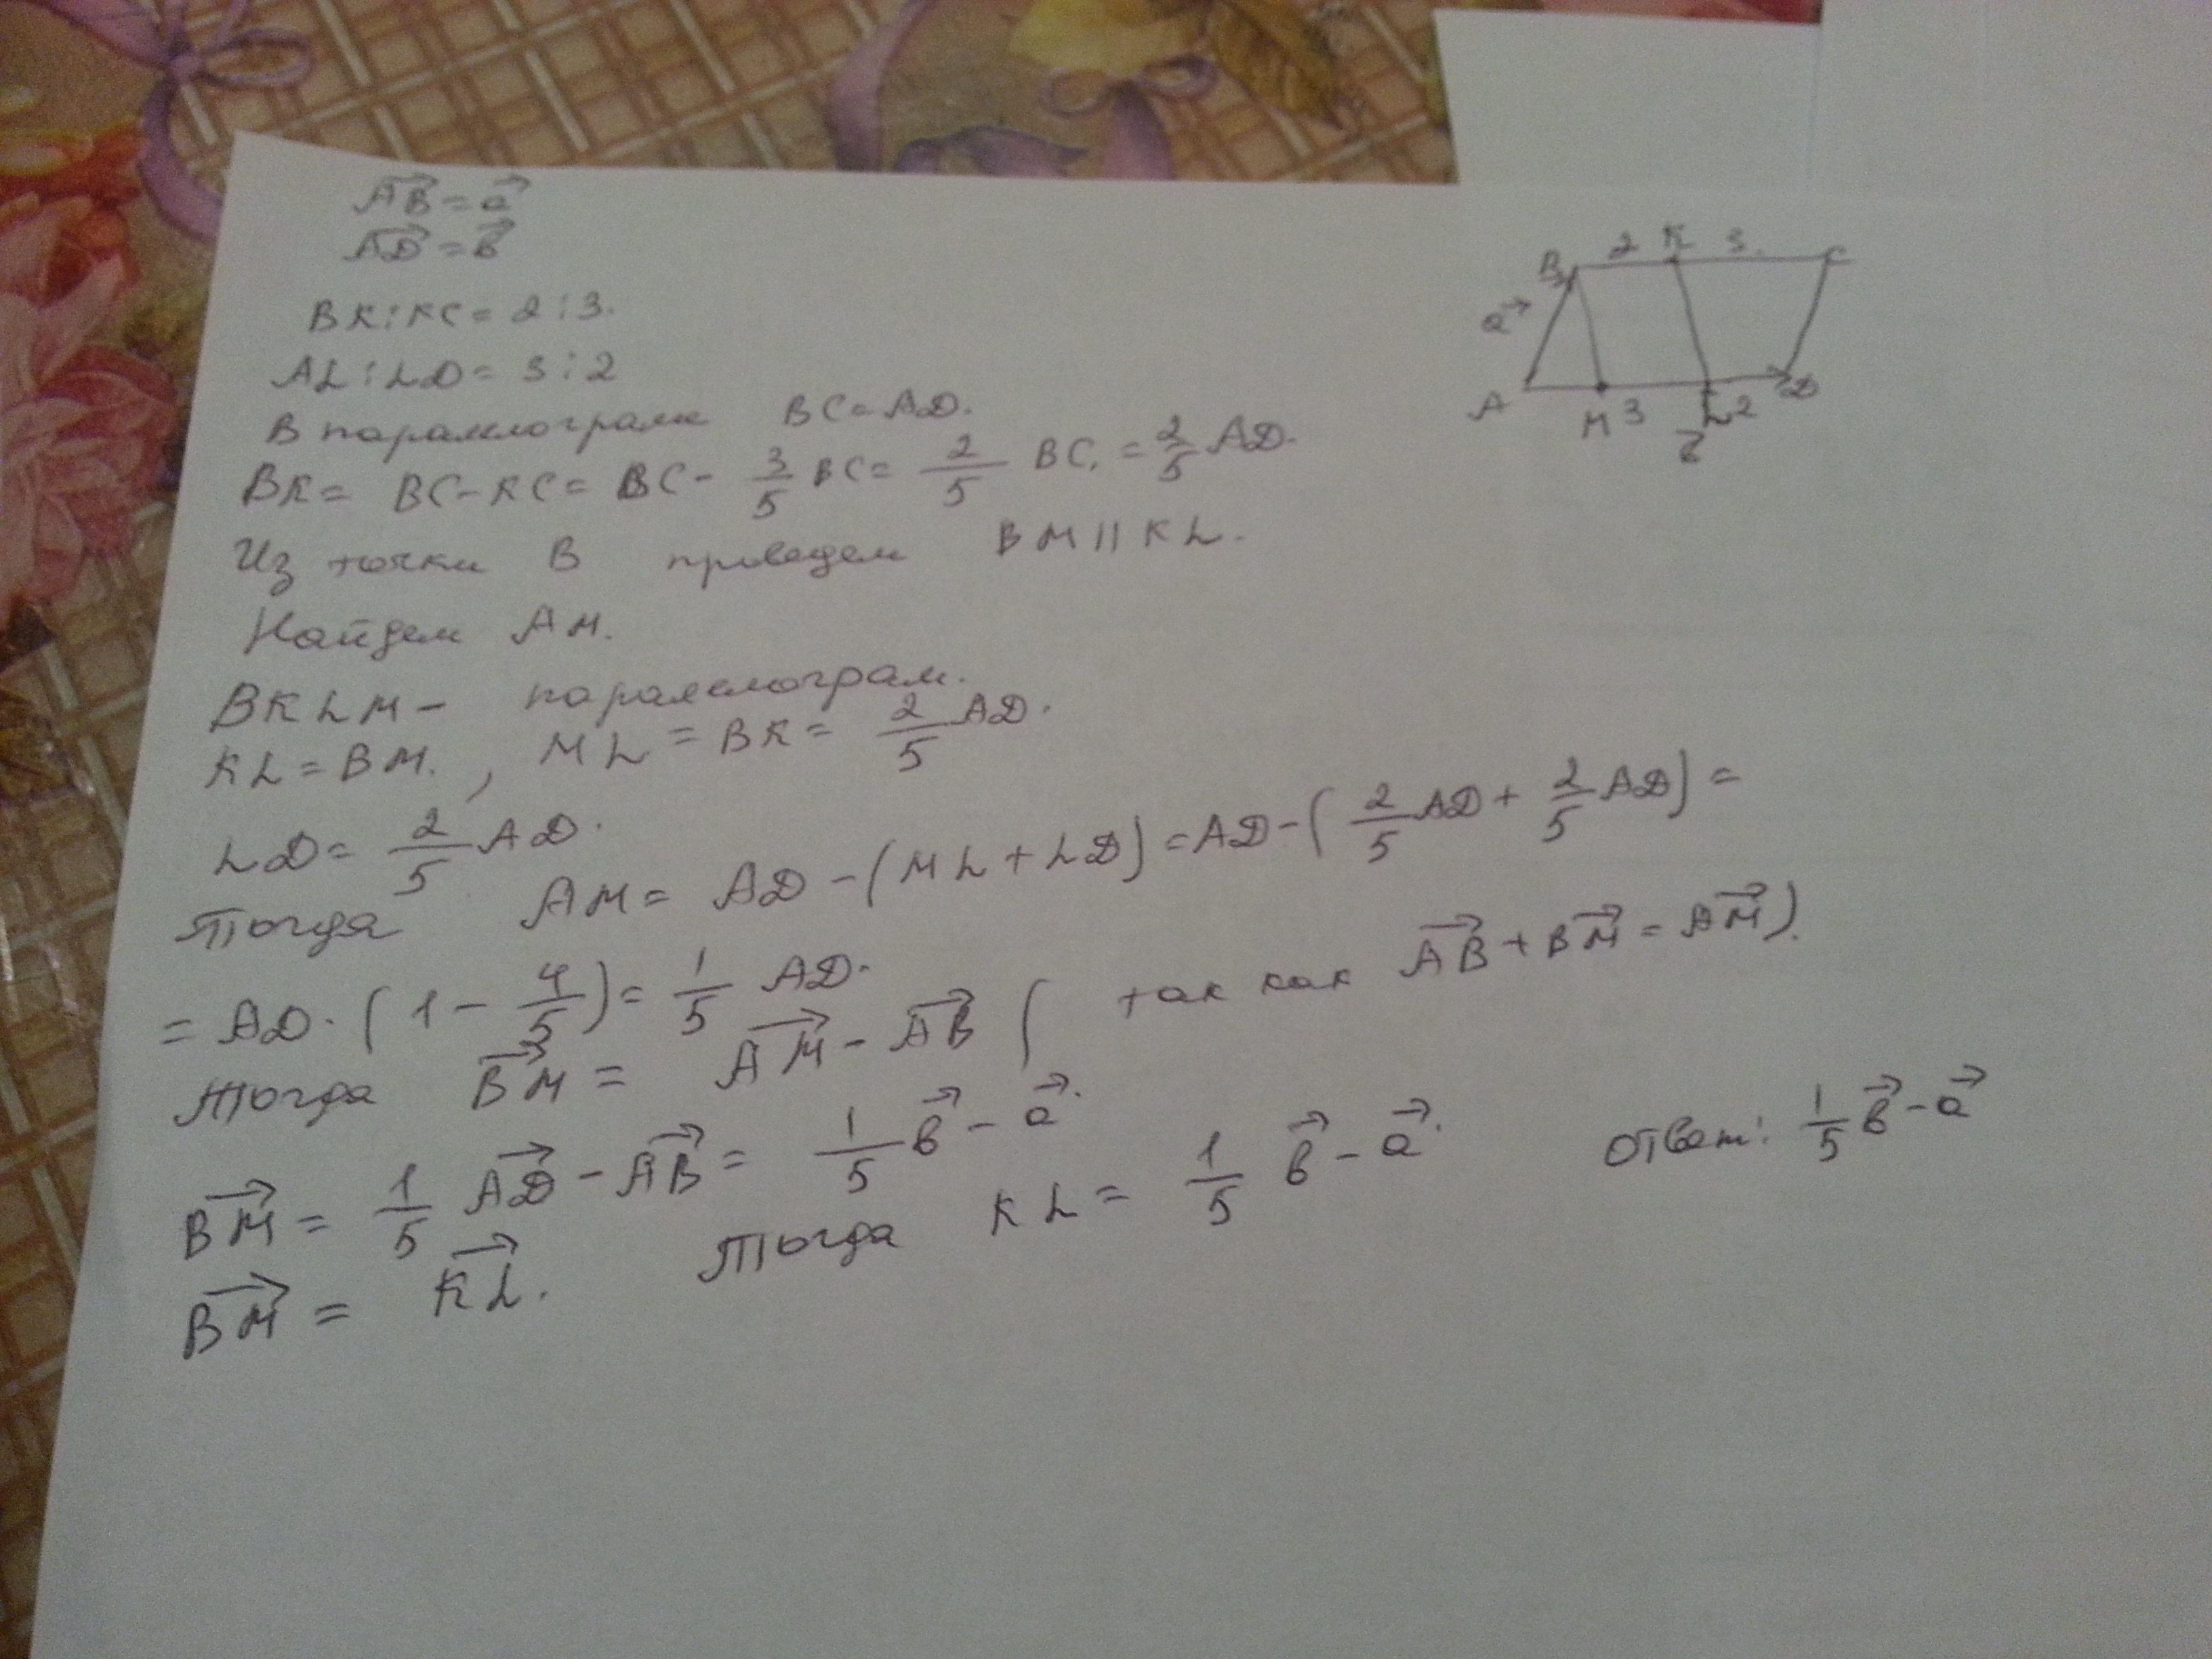 AB⃗ = a⃗
AD⃗ = в⃗
BK:KC = 2:3.
AL:LD = 3:2
В паралелограме BC=AD.
BK= BC-KC= BC- 3/5 BC= 2/5 BC. = 2/5 AD.
Из точки B проведем BM || KL.
Найдем AM.
BKLM- паралелограм.
KL=BM. , ML = BK= 2/5 AD.
LD= 2/5 AD.
Тогда AM= AD -(ML+LD)=AD-(2/5 AD+ 2/5 AD) =
= AD·(1- 4/5)= 1/5 AD.
Тогда BM⃗ = AM⃗ - AB⃗ ( так как AB⃗ + BM⃗ = AM⃗ ).
BM⃗ = 1/5 AD⃗ - AB⃗ = 1/5 в⃗ - a⃗.
BM⃗ = KL⃗. Тогда KL = 1/5 в⃗ - a⃗. Ответ: 1/5 в⃗ - a⃗
B 2 K 3. C
a⃗
A M 3 L 2 D
в⃗